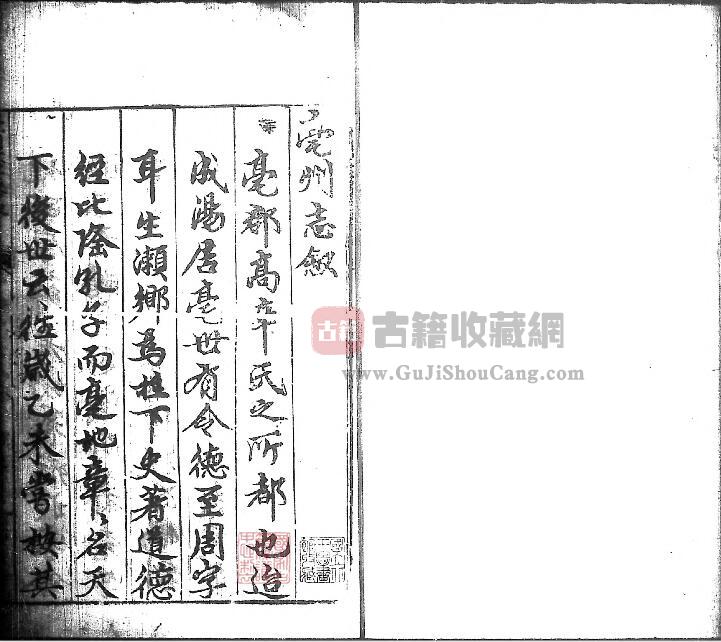 亳州志敘
亳郡高辛氏之所都也迨
成湯居亳世有令德至周字
耳生瀨鄉爲柱下史著道德
經比隆孔子而亳地章〻名天
下後世云往歲乙未嘗按其
古籍
古籍收藏網
www.GuJiShouCang.com